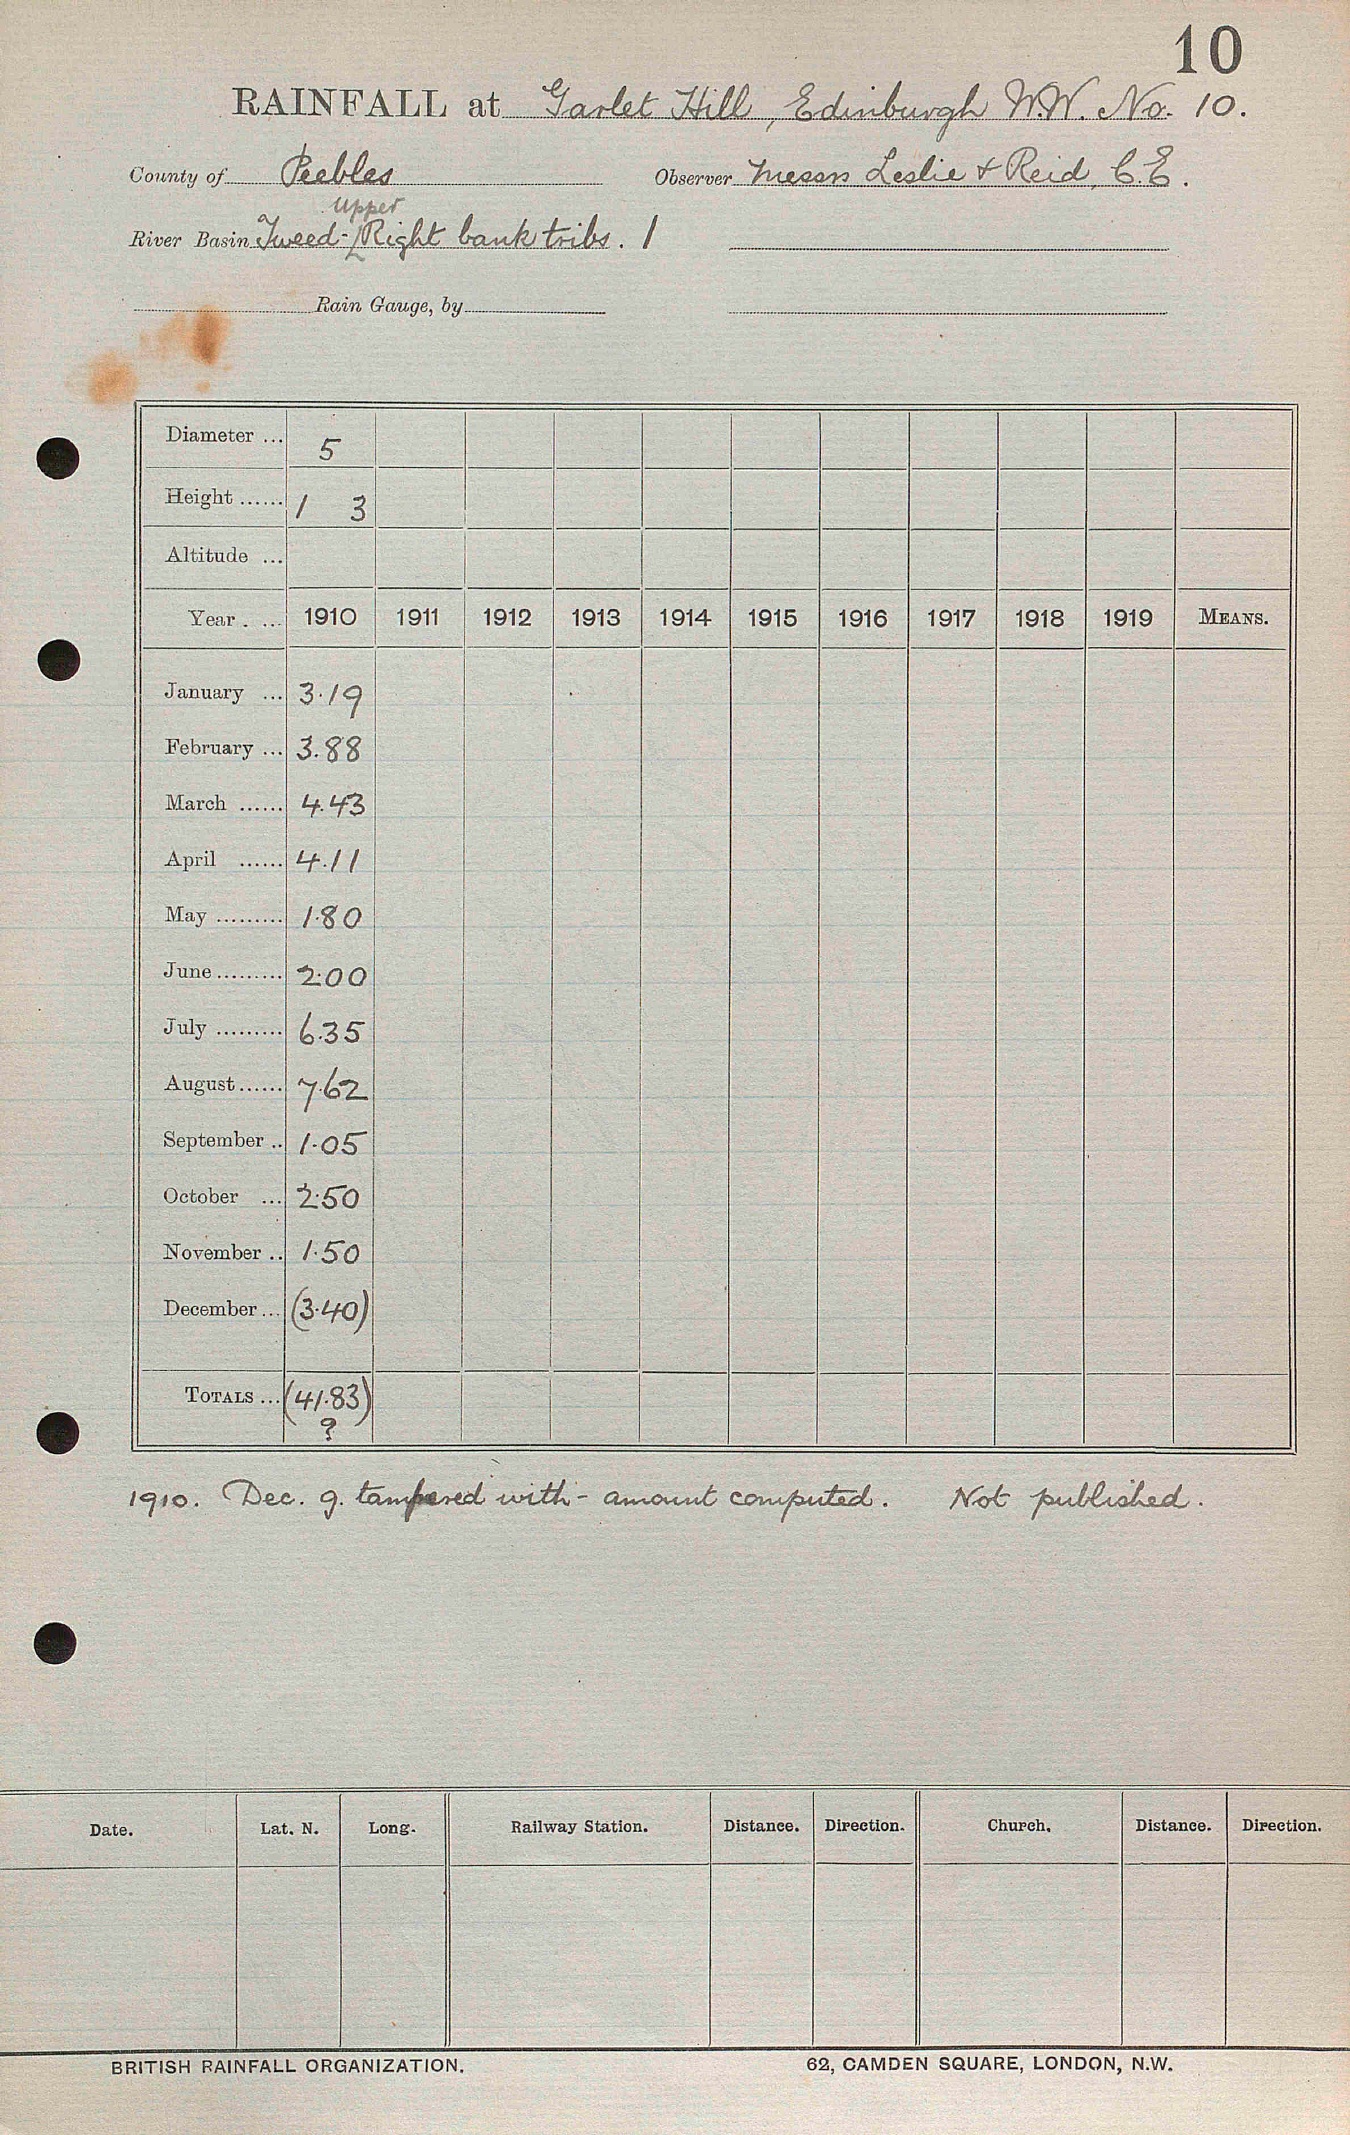 10
RAINFALL at Garlet Hill, Edinburgh W.W. No. 10.
County of Peebles Observer Messrs Leslie & Reid, C.E.
Upper
River Basin Tweed - Right bank tribs. 1
Rain Gauge, by
Diameter ... 5
Height ...... 1 3
Altitude ...
Year . ... 1910 1911 1912 1913 1914 1915 1916 1917 1918 1919 MEANS.
January ... 3.19
February ... 3.88
March ...... 4.43
April ...... 4.11
May ......... 1.80
June ......... 2.00
July ......... 6.35
August ...... 7.62
September .. 1.05
October ... 2.50
November .. 1.50
December ... (3.40)
TOTALS ... (41.83)
?
1910. Dec. g. tampered with - amount computed. Not published.
Date. Lat. N. Long. Railway Station. Distance. Direction. Church. Distance. Direction.
BRITISH RAINFALL ORGANIZATION. 62, CAMDEN SQUARE, LONDON, N.W.